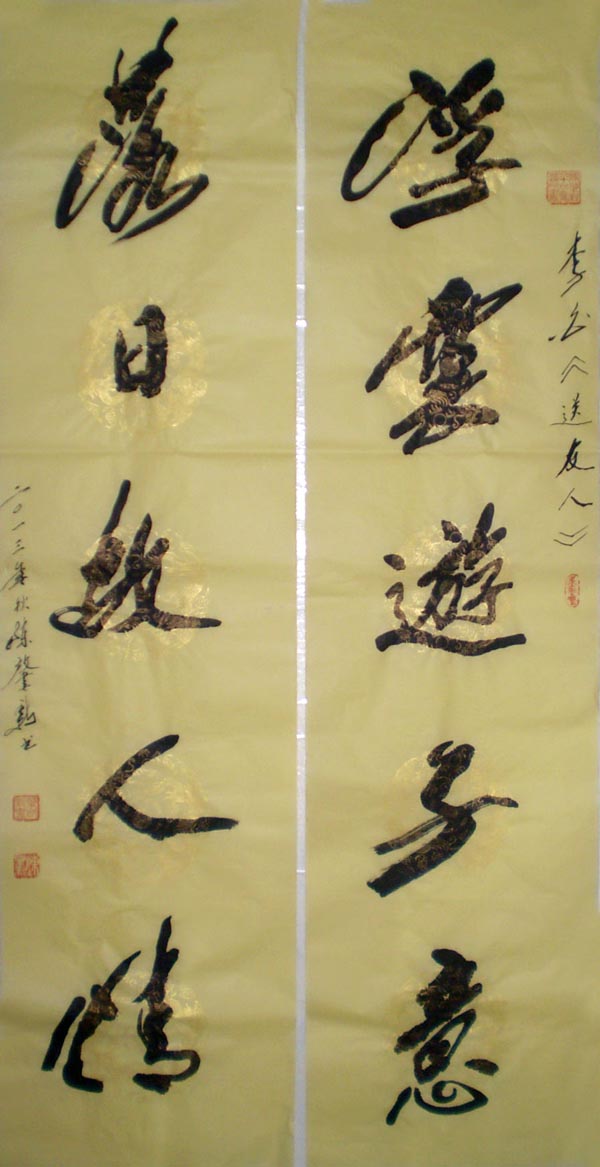 李白《送友人》
浮雲遊子意
落日故人情
二〇一三年秋陈肇勋书